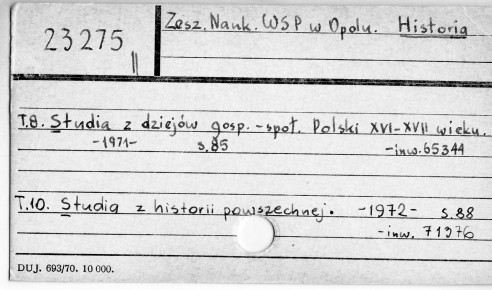 23275 II
Zesz. Nauk. WSP w Opolu. Historia
T.8. Studia z dziejów gosp.-społ. Polski XVI-XVII wieku.
-1971- s.85 -inw.65344
T.10. Studia z historii powszechnej. -1972- s.88
-inw. 71376
DUJ. 693/70. 10 000.